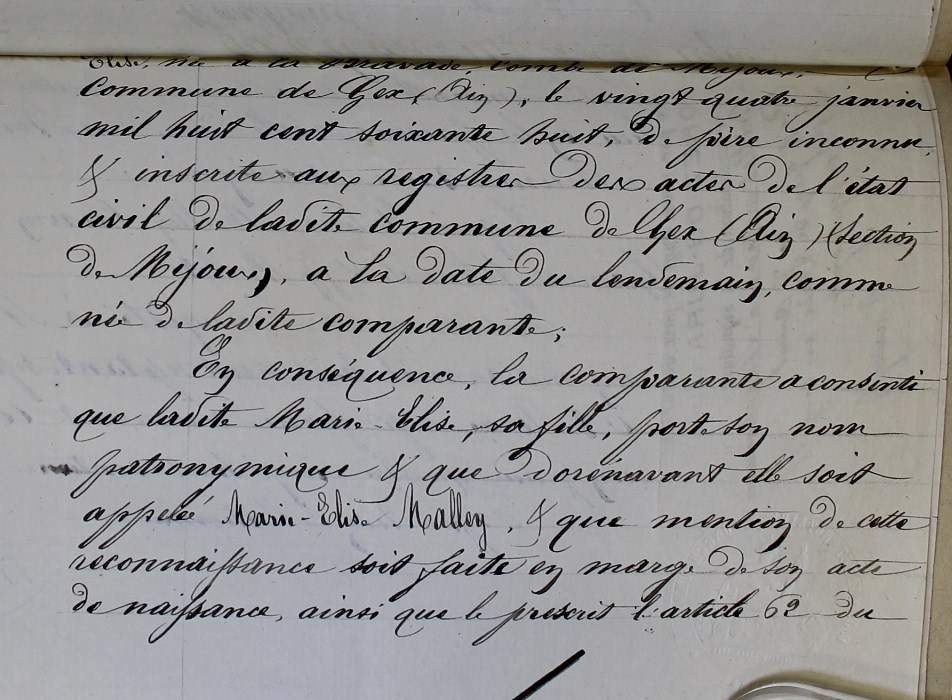 Elise, née à la Bravade, combe de Mijoux,
commune de Gex (Ain), le vingt quatre janvier
mil huit cent soixante huit, de père inconnu,
& inscrite aux registres des actes de l'état
civil de ladite commune de Gex (Ain) (Section
de Mijoux), à la date du lendemain, comme
née de ladite comparante;
En conséquence, la comparante a consenti
que ladite Marie-Elise, sa fille, porte son nom
patronymique & que dorénavant elle soit
appelée Marie-Elise Malley, & que mention de cette
reconnaissance soit faite en marge de son acte
de naissance, ainsi que le prescrit l'article 62 du